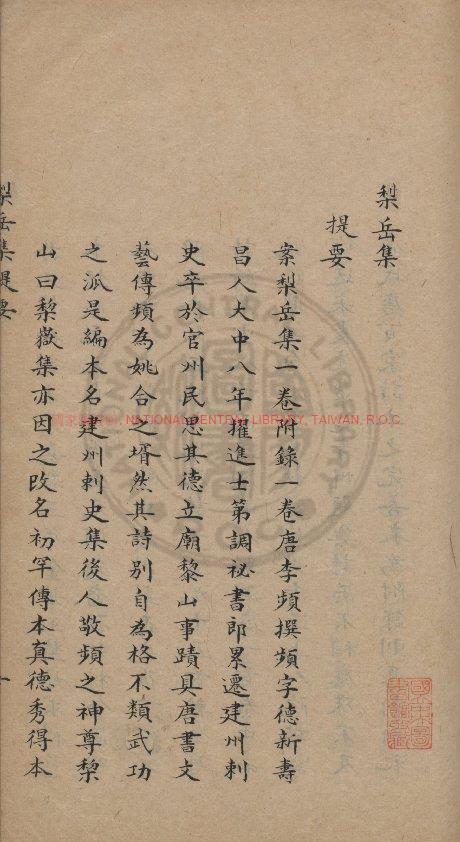 梨岳集
提要
案梨岳集一卷附錄一卷唐李頻撰頻字德新壽
昌人大中八年擢進士第調祕書郎累遷建州刺
史卒於官州民思其德立廟黎山事蹟具唐書文
藝傳頻為姚合之壻然其詩別自為格不類武功
之派是編本名建州刺史集後人敬頻之神尊棃
山曰棃嶽集亦因之改名初罕傳本真德秀得本
梨岳集提要
一
NATIONAL CENTRAL LIBRARY, TAIWAN, R.O.C.